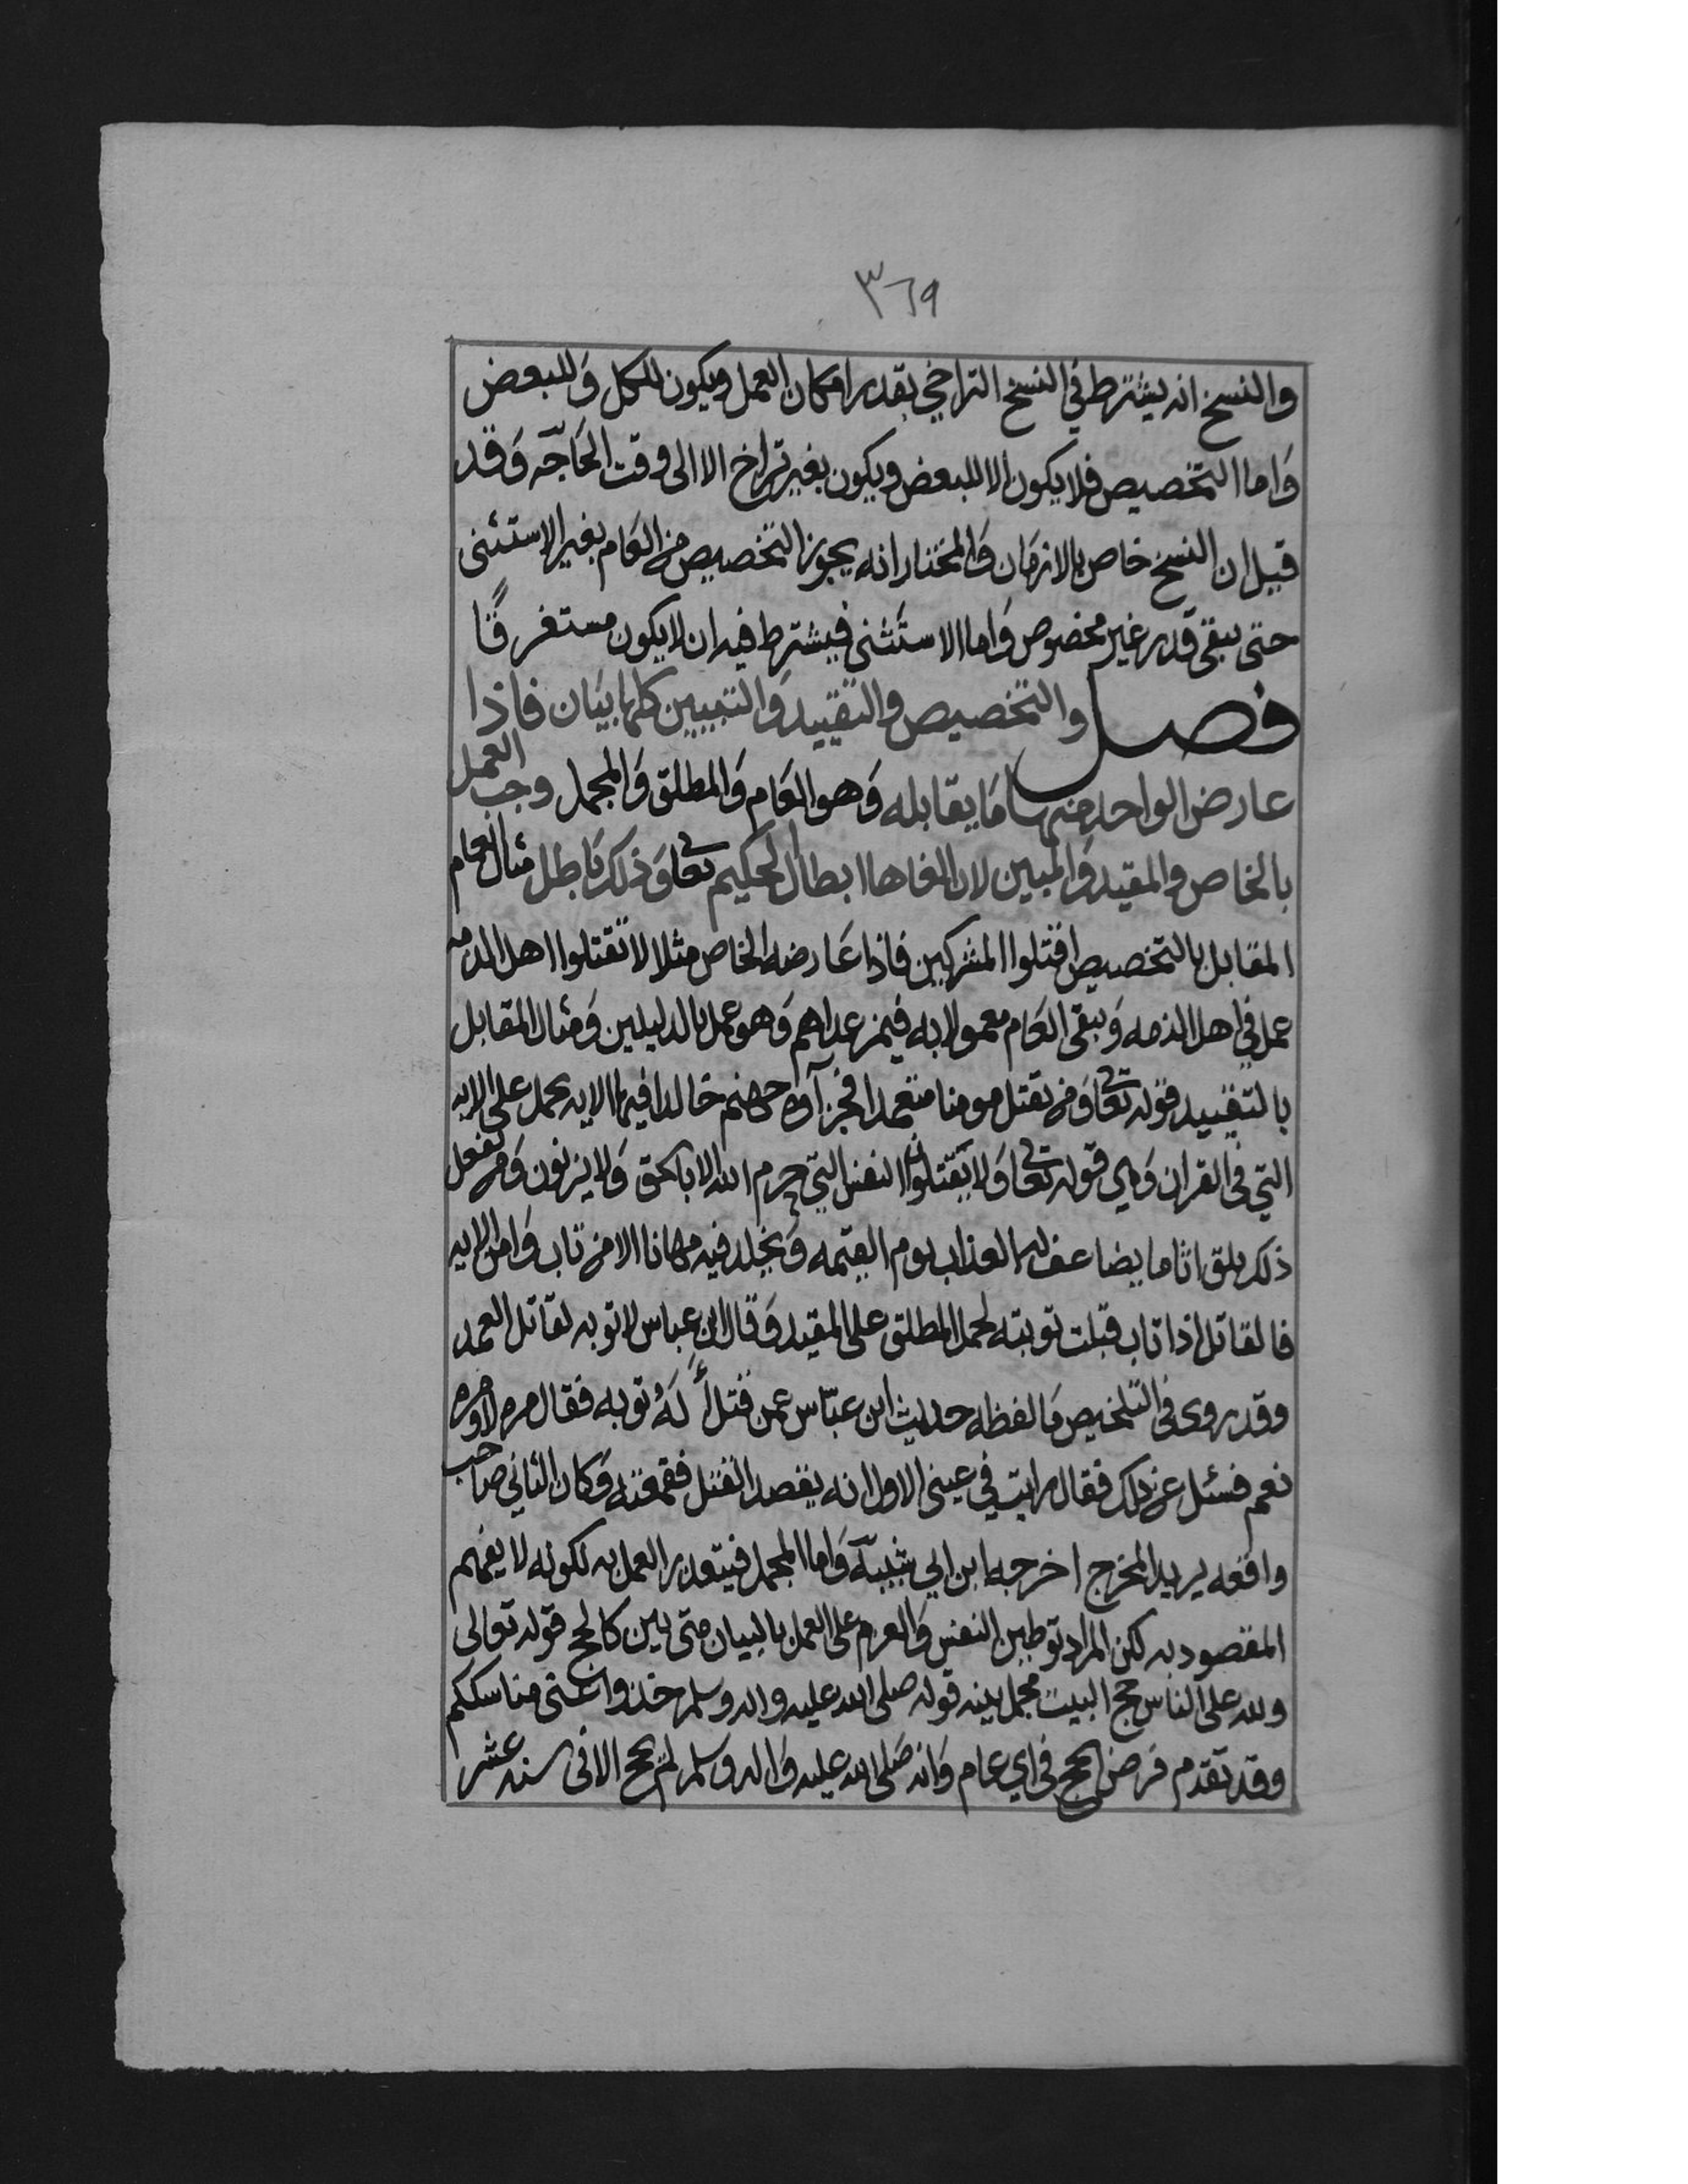 ٣٦٩
والنسخ انه يشترط في النسخ التراخي بقدر امكان العمل ويكون للكل وللبعض
واما التخصيص فلا يكون الا للبعض ويكون بغير تراخ الا الى وقت الحاجه وقد
قيل ان النسخ خاص بالازمان والمختار انه يجوز التخصيص من العام بغير الاستثنى
حتى يبقى قدر غير مخصوص واما الاستثنى فيشترط فيه ان لا يكون مستغرقًا
فصل والتخصيص والتقييد والتبيين كلها بيان فاذا
عارض الواحد منها ما يقابله وهو العام والمطلق والمجمل وجب العمل
بالخاص والمقيد والمبين لان الغاها ابطال لحكيم تعا وذلك باطل مثال العام
المقابل بالتخصيص اقتلوا المشركين فاذا عارضه الخاص مثلا لا تقتلوا اهل الذمه
عمل في اهل الذمه ويبقى العام معمولا به فيمن عداهم وهو عمل بالدليلين ومثال المقابل
بالتقييد قوله تعا ومن يقتل مومنا متعمدا فجزآوه جهنم خالدا فيها الايه يحمل على الايه
التي في القران وهي قوله تعا ولا يقتلون النفس التي حرم الله الا بالحق ولا يزنون ومن يفعل
ذلك يلق اثاما يضاعف له العذاب يوم القيمه ويخلد فيه مهانا الا من تاب وامن الايه
فالقاتل اذا تاب قبلت توبته لحمل المطلق على المقيد وقال ابن عباس لا توبه لقاتل العمد
وقد روى في التلخيص ما لفظه حديث ابن عباس عمن قتل أله توبه فقال مره لا ومره
نعم فسئل عن ذلك فقال رايت في عيني الاول انه يقصد القتل فقمعته وكان الثاني صاحب
واقعه يريد المخرج اخرجه ابن ابي شيبه واما المجمل فيتعذر العمل به لكونه لا يفهم
المقصود به لكن المراد توطين النفس والعزم على العمل بالبيان متى بين كالحج قوله تعالى
ولله على الناس حج البيت مجمل بينه قوله صلى الله عليه واله وسلم خذوا عنى مناسككم
وقد تقدم فرض الحج في اي عام وانه صلى الله عليه واله وسلم لم يحج الا في سنه عشر